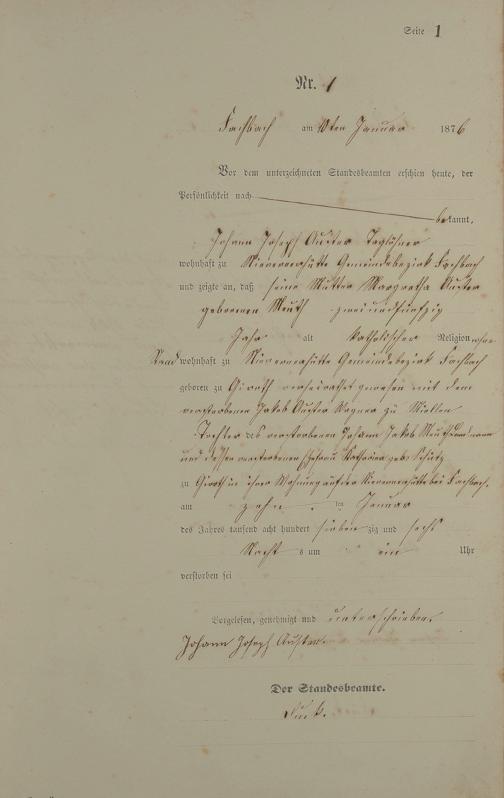 Seite 1
Nr. 1
Fachbach am 10ten Januar 1876
Vor dem unterzeichneten Standesbeamten erschien heute, der
Persönlichkeit nach
bekannt,
Johann Joseph Auster Taglöhner
wohnhaft zu Nievernerhütte Gemeindebezirk Fachbach
und zeigte an, daß seine Mutter Margretha Auster
geborenen Meuth zweiundfünfzig
Jahr alt katholischer Religion ohne
Stand wohnhaft zu Nievernerhütte Gemeindebezirk Fachbach
geboren zu Giroth verheirathet gewesen mit dem
verstorbenen Jakob Auster Wagner zu Miellen
Tochter des verstorbenen Johann Jakob Meuth Landmann
und dessen verstorbenen Ehefrau Katharina geb. Schütz
zu Giroth in ihrer Wohnung auf der Nievernerhütte bei Fachbach,
am zehn ten Januar
des Jahres tausend acht hundert sieben zig und sechs
Nacht s um ein Uhr
verstorben sei
Vorgelesen, genehmigt und unterschrieben.
Johann Joseph Auster
Der Standesbeamte.